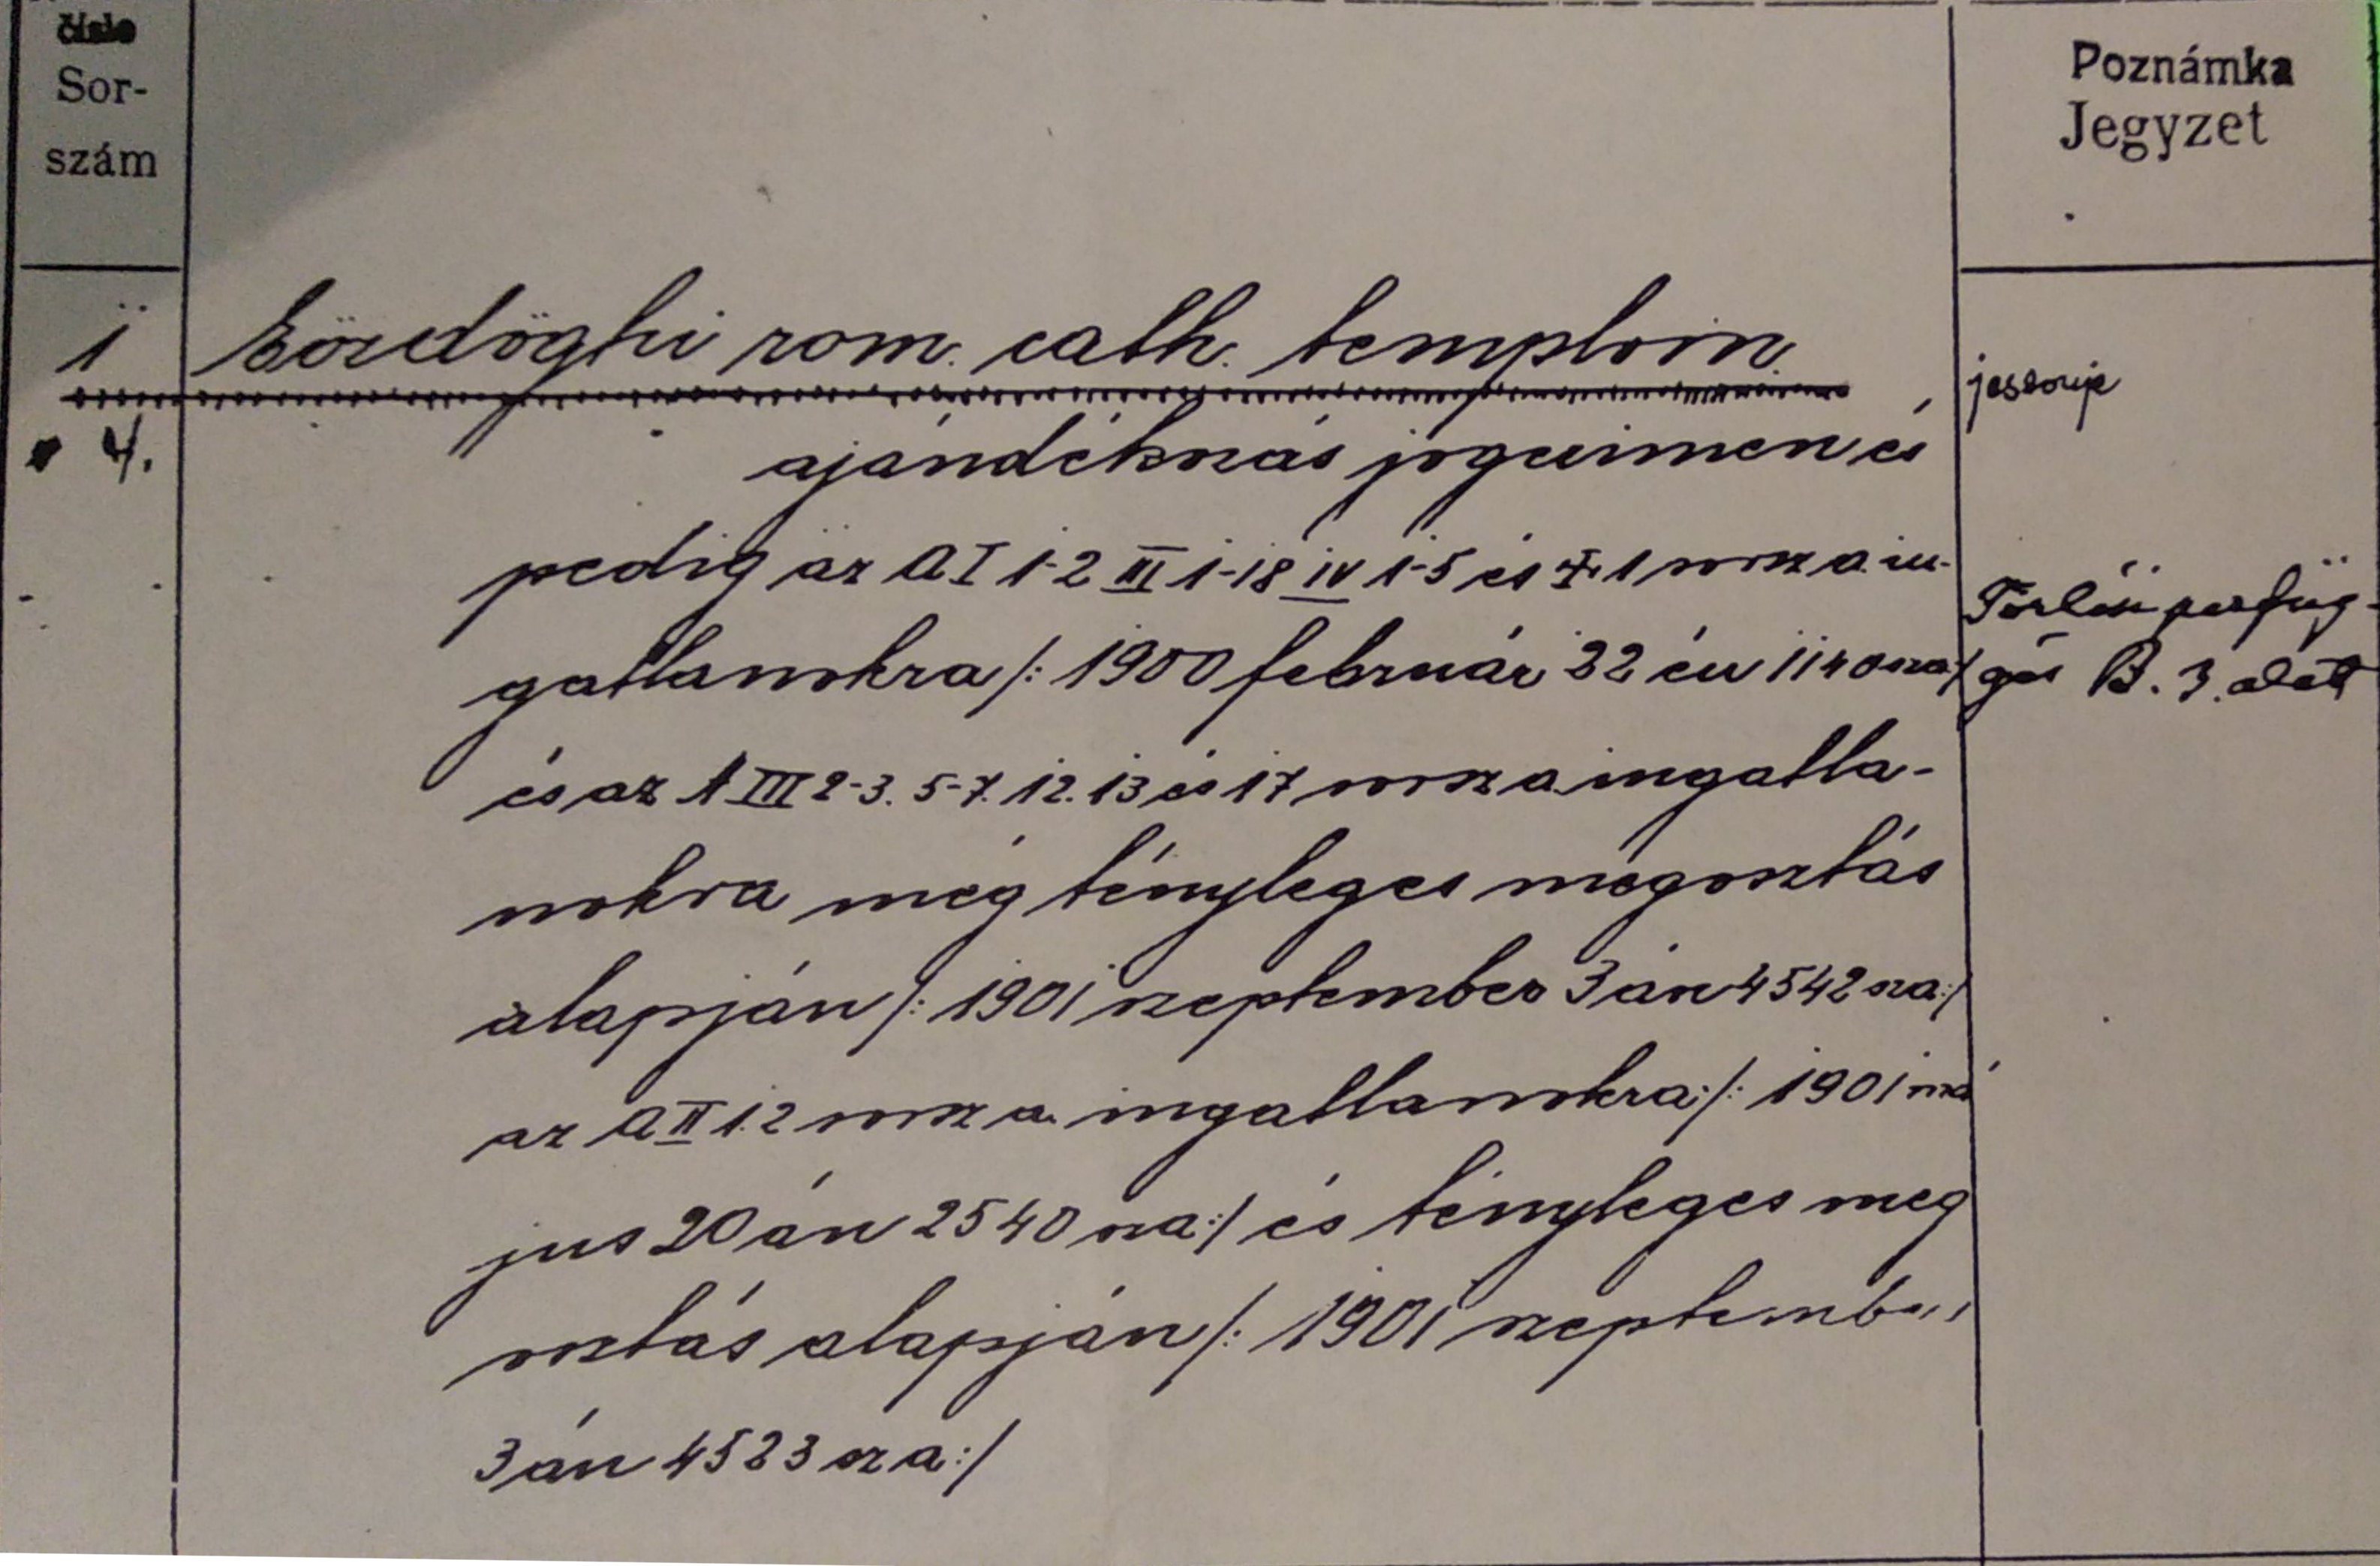 číslo
Sor-
szám
Poznámka
Jegyzet
1 Eördöghi rom. cath. templom
4.
ajándékozás jogcimen és
pedig az A I 1-2 III 1-18 IV 1-5 és 1 sorsz a. in-
gatlanokra /: 1900 február 22 én 1140 sza:/
és az A III 2-3. 5-7. 12. 13 és 17 sorsz a. ingatla-
nokra még tényleges megosztás
alapján /: 1901 szeptember 3 án 4542 sza:/
az A II 1.2 sorsz a. ingatlanokra:/: 1901 má
jus 20 án 2540 sza:/ és tényleges meg
osztás alapján /: 1901 szeptember
3 án 4523 sza:/
B. 3. alatt